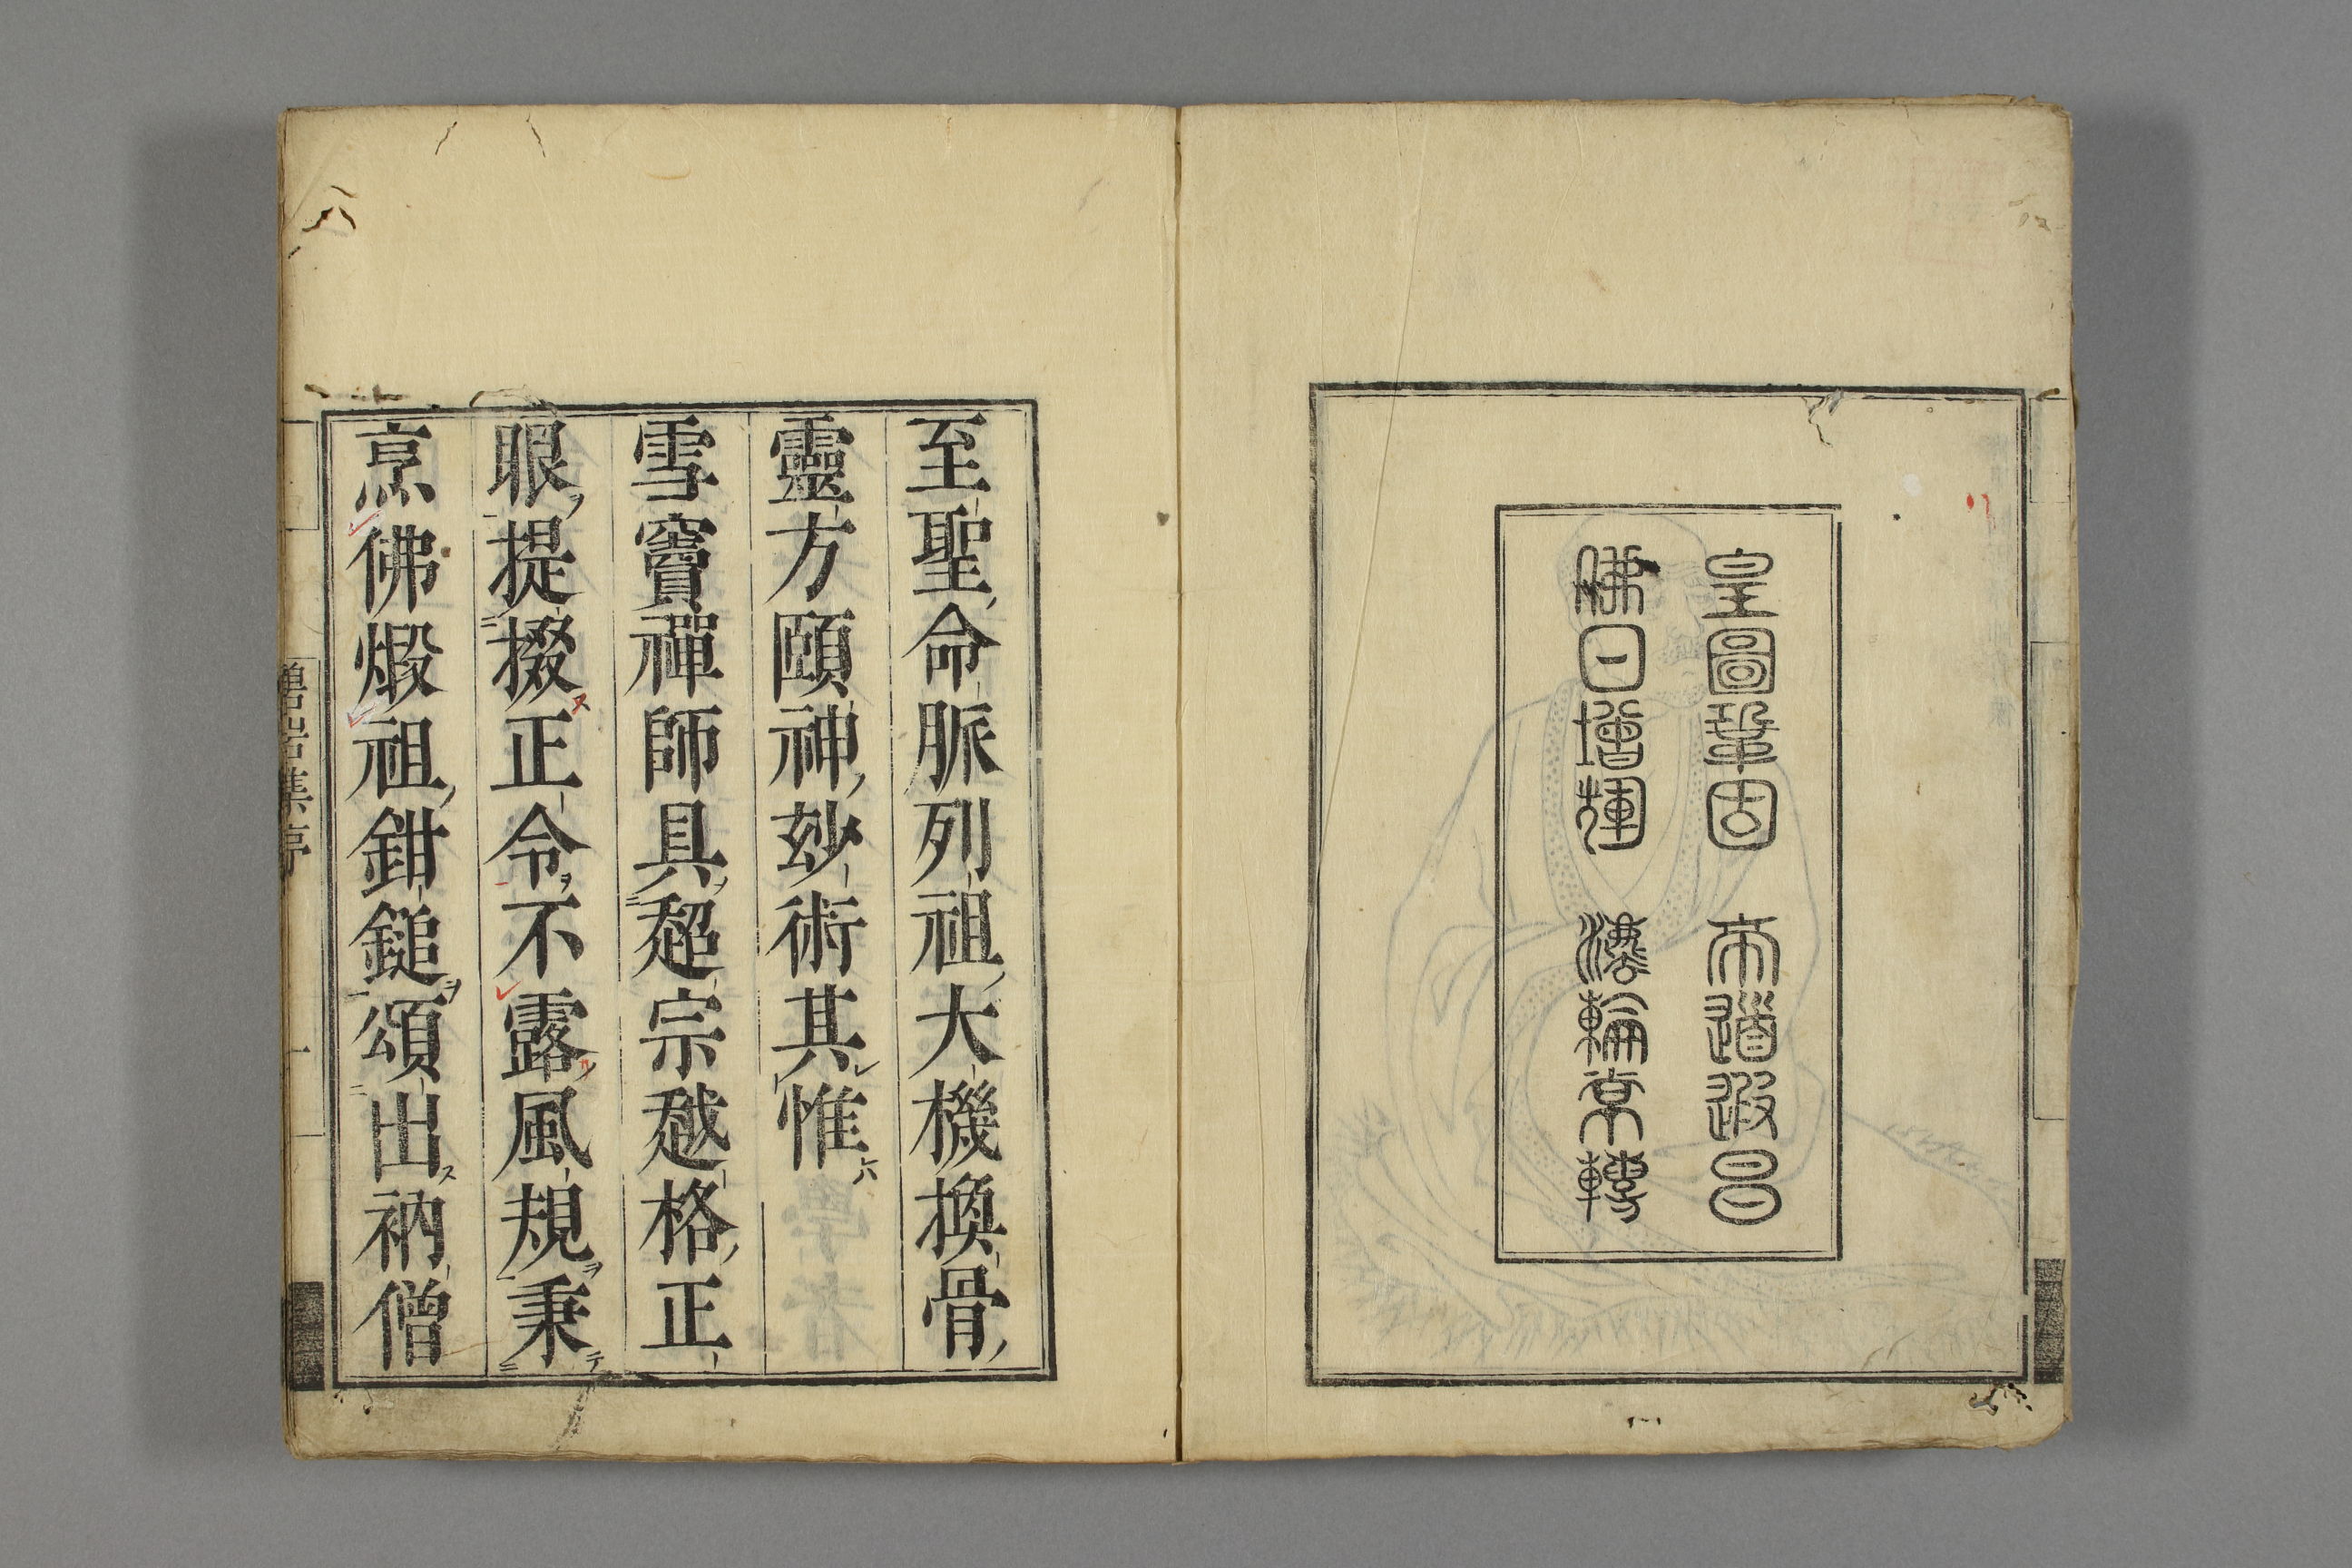 皇圖鞏固　帝道遐昌
佛日增輝　法輪常轉
至聖命脈列祖大機換骨
靈方頤神玅術其惟
雪竇禪師具超宗越格正
眼提掇正令不露風規秉
烹佛煅祖鉗鎚頌出衲僧
碧岩集序
一